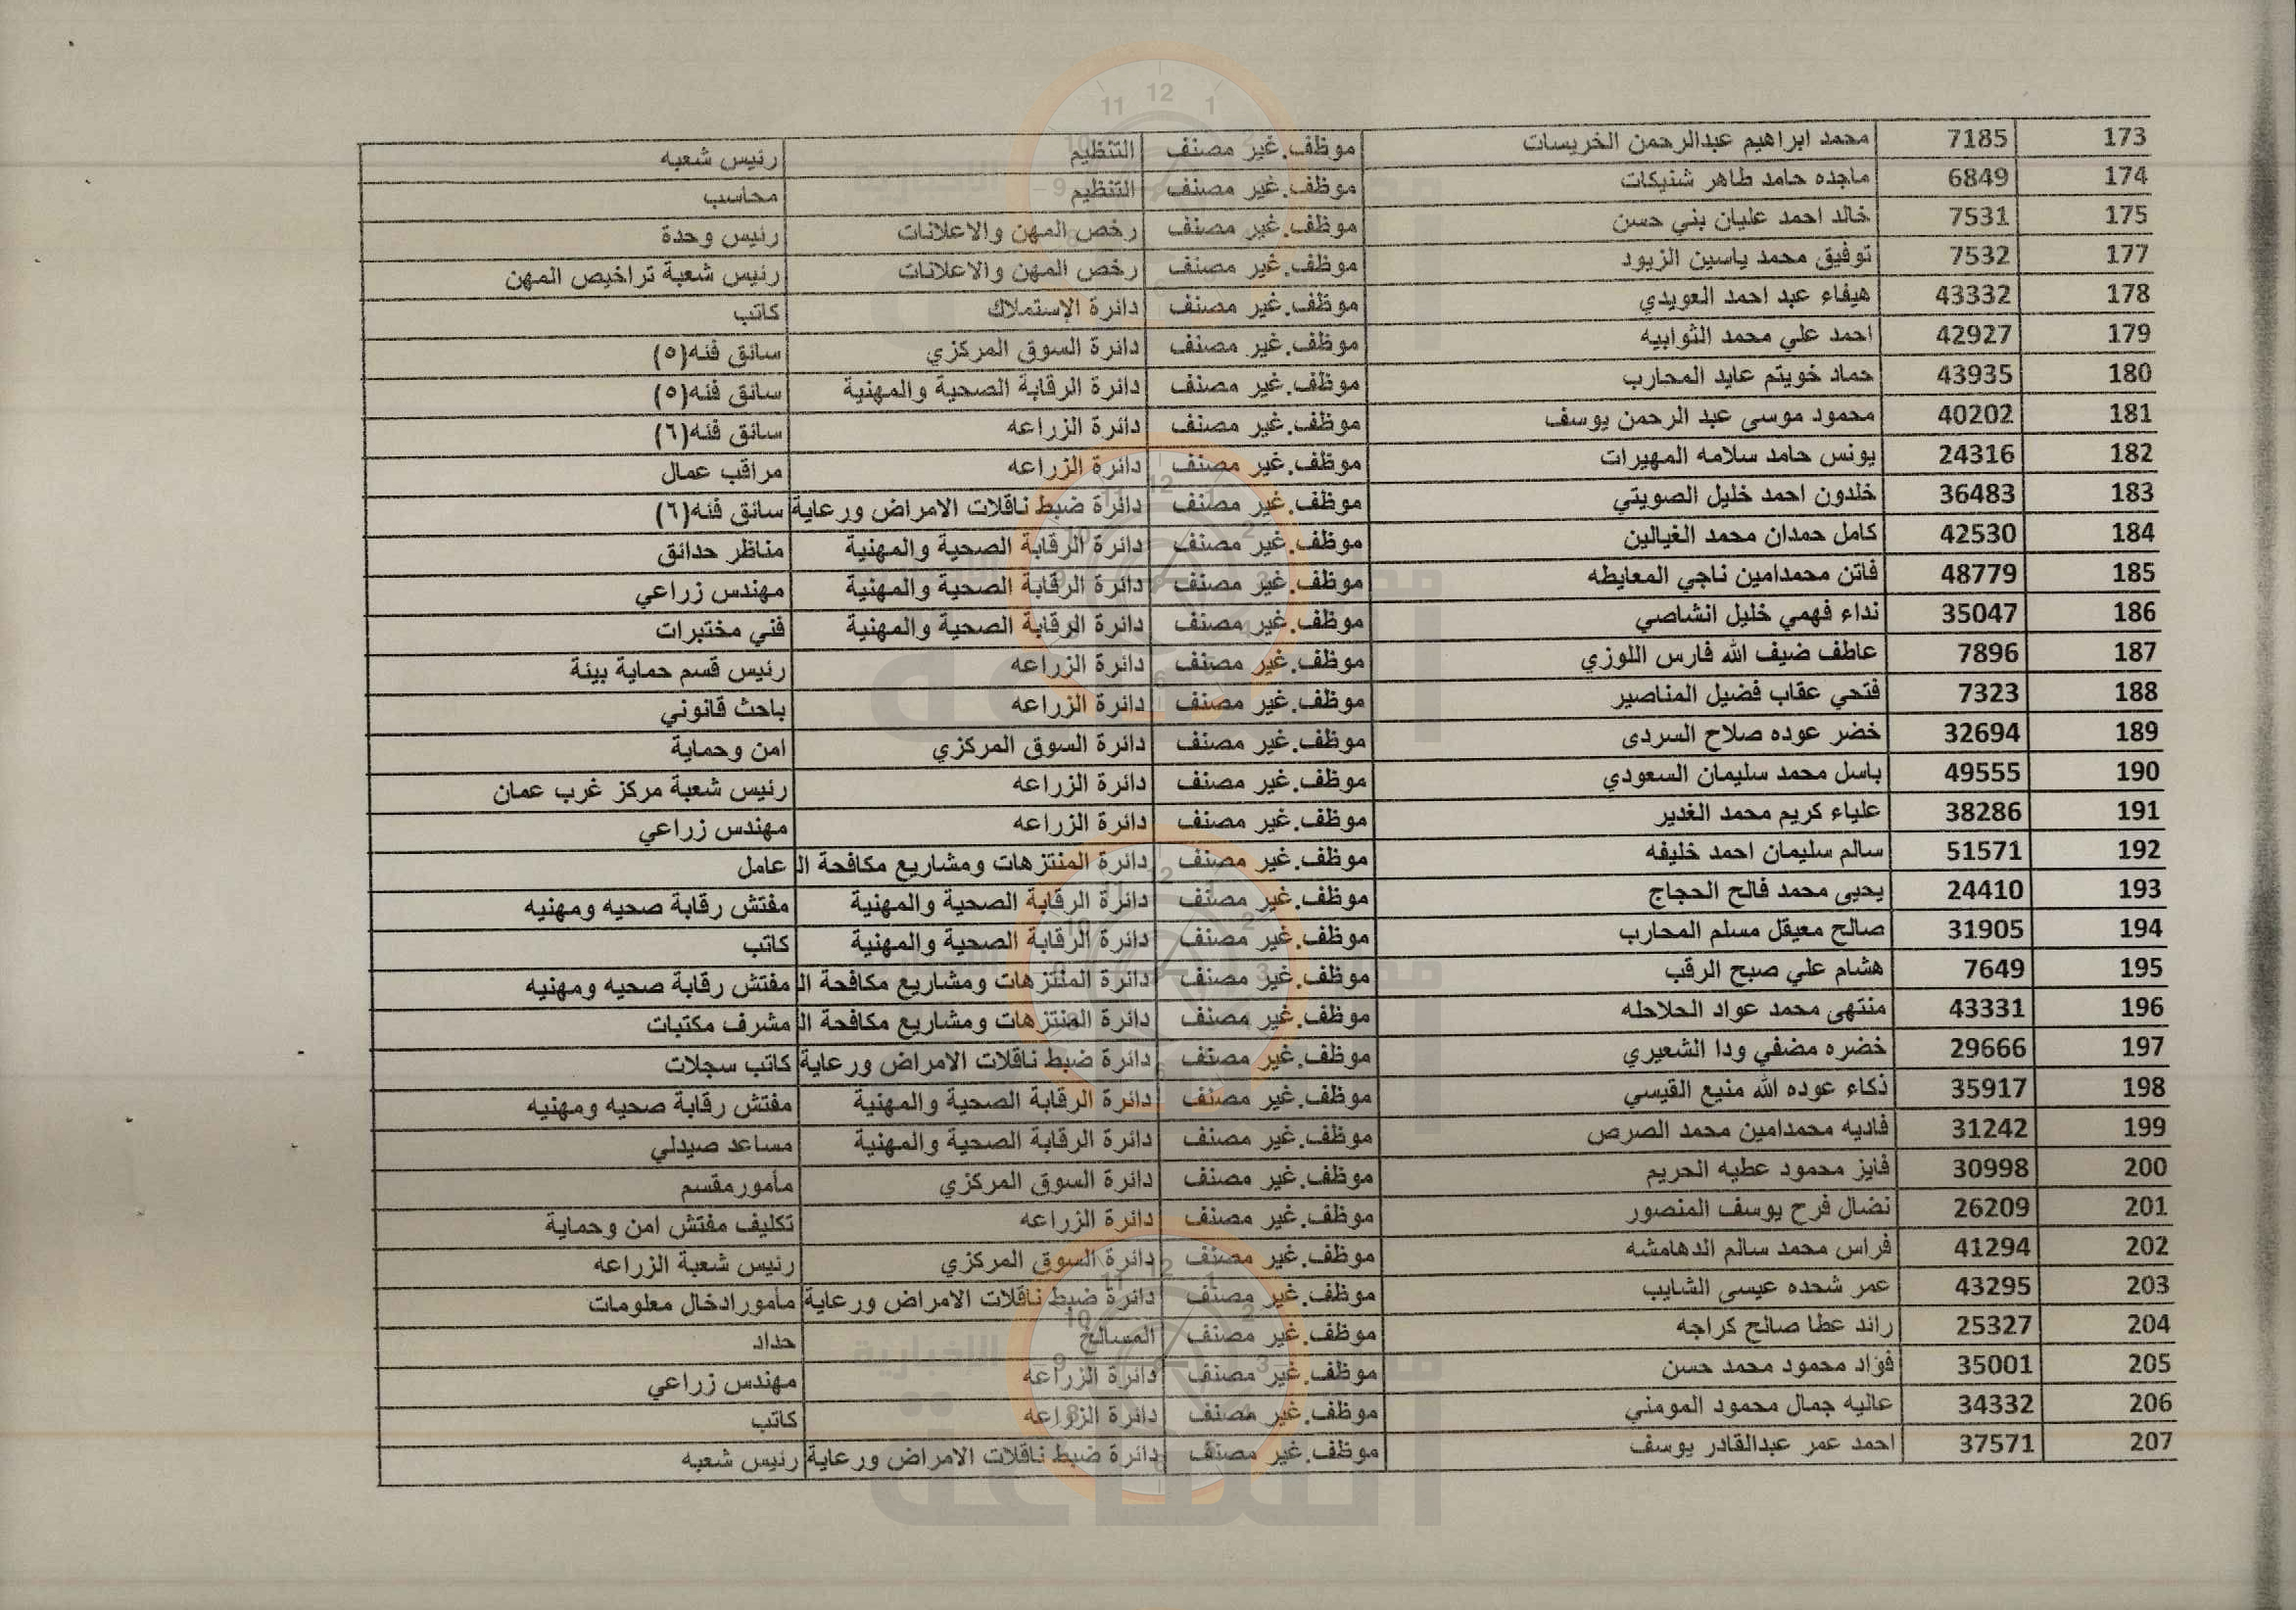 173 7185 محمد ابراهيم عبدالرحمن الخريسات موظف.غير مصنف التنظيم رئيس شعبه
174 6849 ماجده حامد طاهر شنيكات موظف.غير مصنف التنظيم محاسب
175 7531 خالد احمد عليان بني حسن موظف.غير مصنف رخص المهن والاعلانات رئيس وحدة
177 7532 توفيق محمد ياسين الزيود موظف.غير مصنف رخص المهن والاعلانات رئيس شعبة تراخيص المهن
178 43332 هيفاء عبد احمد العويدي موظف.غير مصنف دائرة الإستملاك كاتب
179 42927 احمد علي محمد الثوابيه موظف.غير مصنف دائرة السوق المركزي سائق فئه(٥)
180 43935 حماد خويتم عايد المحارب موظف.غير مصنف دائرة الرقابة الصحية والمهنية سائق فئه(٥)
181 40202 محمود موسى عبد الرحمن يوسف موظف.غير مصنف دائرة الزراعه سائق فئه(٦)
182 24316 يونس حامد سلامه المهيرات موظف.غير مصنف دائرة الزراعه مراقب عمال
183 36483 خلدون احمد خليل الصويتي موظف.غير مصنف دائرة ضبط ناقلات الامراض ورعاية سائق فئه(٦)
184 42530 كامل حمدان محمد الغيالين موظف.غير مصنف دائرة الرقابة الصحية والمهنية مناظر حدائق
185 48779 فاتن محمدامين ناجي المعايطه موظف.غير مصنف دائرة الرقابة الصحية والمهنية مهندس زراعي
186 35047 نداء فهمي خليل انشاصي موظف.غير مصنف دائرة الرقابة الصحية والمهنية فني مختبرات
187 7896 عاطف ضيف الله فارس اللوزي موظف.غير مصنف دائرة الزراعه رئيس قسم حماية بيئة
188 7323 فتحي عقاب فضيل المناصير موظف.غير مصنف دائرة الزراعه باحث قانوني
189 32694 خضر عوده صلاح السردى موظف.غير مصنف دائرة السوق المركزي امن وحماية
190 49555 باسل محمد سليمان السعودي موظف.غير مصنف دائرة الزراعه رئيس شعبة مركز غرب عمان
191 38286 علياء كريم محمد الغدير موظف.غير مصنف دائرة الزراعه مهندس زراعي
192 51571 سالم سليمان احمد خليفه موظف.غير مصنف دائرة المنتزهات ومشاريع مكافحة ال عامل
193 24410 يحيى محمد فالح الحجاج موظف.غير مصنف دائرة الرقابة الصحية والمهنية مفتش رقابة صحيه ومهنيه
194 31905 صالح معيقل مسلم المحارب موظف.غير مصنف دائرة الرقابة الصحية والمهنية كاتب
195 7649 هشام علي صبح الرقب موظف.غير مصنف دائرة المنتزهات ومشاريع مكافحة ال مفتش رقابة صحيه ومهنيه
196 43331 منتهى محمد عواد الحلاحله موظف.غير مصنف دائرة المنتزهات ومشاريع مكافحة ال مشرف مكتبات
197 29666 خضره مضفي ودا الشعيري موظف.غير مصنف دائرة ضبط ناقلات الامراض ورعاية كاتب سجلات
198 35917 ذكاء عوده الله منيع القيسي موظف.غير مصنف دائرة الرقابة الصحية والمهنية مفتش رقابة صحيه ومهنيه
199 31242 فاديه محمدامين محمد الصرص موظف.غير مصنف دائرة الرقابة الصحية والمهنية مساعد صيدلي
200 30998 فايز محمود عطيه الحريم موظف.غير مصنف دائرة السوق المركزي مأمورمقسم
201 26209 نضال فرح يوسف المنصور موظف.غير مصنف دائرة الزراعه تكليف مفتش امن وحماية
202 41294 فراس محمد سالم الدهامشه موظف.غير مصنف دائرة السوق المركزي رئيس شعبة الزراعه
203 43295 عمر شحده عيسى الشايب موظف.غير مصنف دائرة ضبط ناقلات الامراض ورعاية مأمورادخال معلومات
204 25327 رائد عطا صالح كراجه موظف.غير مصنف المسالخ حداد
205 35001 فؤاد محمود محمد حسن موظف.غير مصنف دائرة الزراعه مهندس زراعي
206 34332 عاليه جمال محمود المومني موظف.غير مصنف دائرة الزراعه كاتب
207 37571 احمد عمر عبدالقادر يوسف موظف.غير مصنف دائرة ضبط ناقلات الامراض ورعاية رئيس شعبه